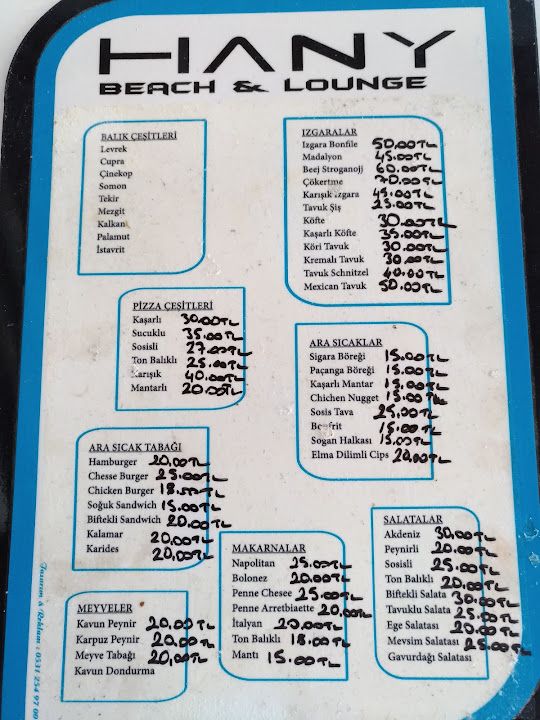 HANY
BEACH & LOUNGE
BALIK ÇEŞİTLERİ
Levrek
Cupra
Çinekop
Somon
Tekir
Mezgit
Kalkan
Palamut
İstavrit
IZGARALAR
Izgara Bonfile 50,00TL
Madalyon 45.00TL
Beej Stroganojj 60.00TL
Çökertme 70.00TL
Karışık Izgara 45.00TL
Tavuk Şiş 25.00TL
Köfte 30.00TL
Kaşarlı Köfte 35.00TL
Köri Tavuk 30.00TL
Kremalı Tavuk 30.00TL
Tavuk Schnitzel 40.00TL
Mexican Tavuk 50.00TL
PİZZA ÇEŞİTLERİ
Kaşarlı 30.00TL
Sucuklu 35.00TL
Sosisli 27.00TL
Ton Balıklı 25.00TL
Karışık 40.00TL
Mantarlı 20.00TL
ARA SICAKLAR
Sigara Böreği 15.00TL
Paçanga Böreği 15.00TL
Kaşarlı Mantar 15.00TL
Chichen Nugget 15.00TL
Sosis Tava 25.00TL
15.00TL
Sogan Halkası 15.00TL
Elma Dilimli Cips 20,00TL
ARA SICAK TABAĞI
Hamburger 20,00TL
Chesse Burger 25.00TL
Chicken Burger
Soğuk Sandwich 15.00TL
Biftekli Sandwich 20.00TL
Kalamar 20,00TL
Karides 20,00TL
MAKARNALAR
Napolitan 25.00TL
Bolonez 20.00TL
Penne Chesee 25.00TL
Penne Arretbiaette 20,00TL
İtalyan 20.00TL
Ton Balıklı 18.00TL
Mantı 15.00TL
SALATALAR
Akdeniz 30,00TL
Peynirli 20.00TL
Sosisli 25.00TL
Ton Balıklı 20.00TL
Biftekli Salata 30.00TL
Tavuklu Salata 25.00TL
Ege Salatası 20.00TL
Mevsim Salatası 25.00TL
Gavurdağı Salatası
MEYVELER
Kavun Peynir 20,00TL
Karpuz Peynir 20.00TL
Meyve Tabağı 20,00TL
Kavun Dondurma
Tasarım & Reklam : 0531 254 97 00